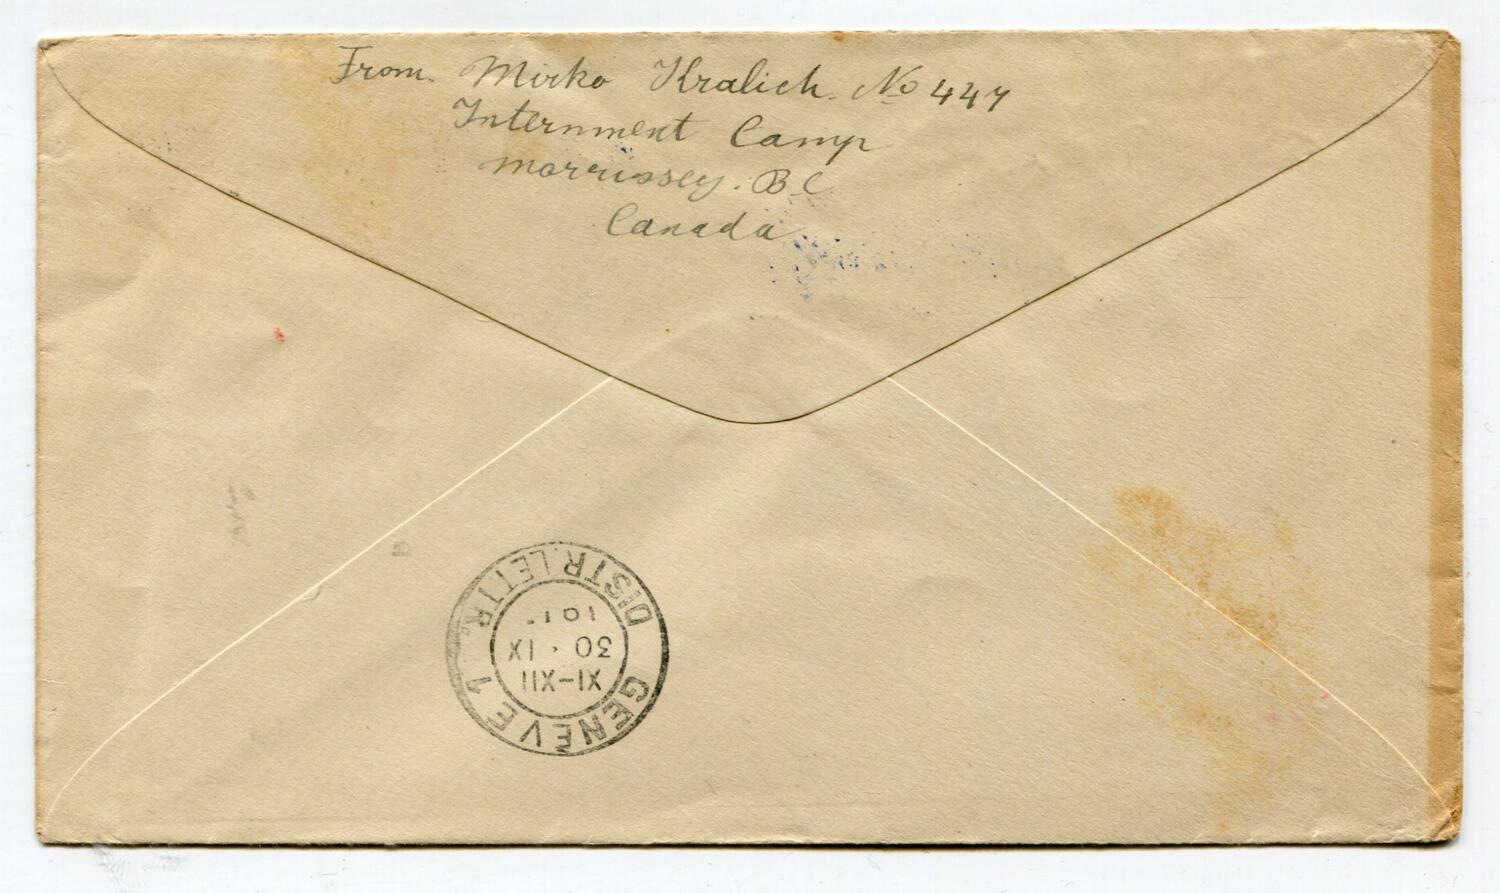 From. Mirko Kralich. No 447
Internment Camp
Morrissey. B.C.
Canada
GENÈVE 1
XI-XII
30 · IX
DISTR. LETTR.